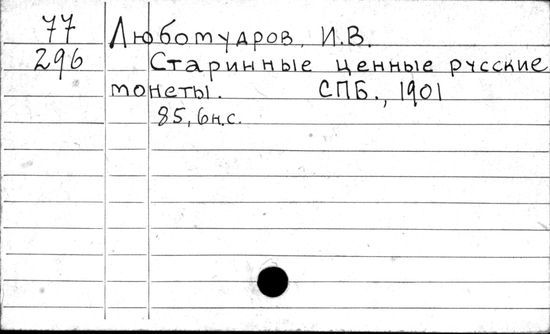 77 Любомудров, И.В.
296 Старинные ценные русские
монеты. СПБ., 1901
85, 6н.с.